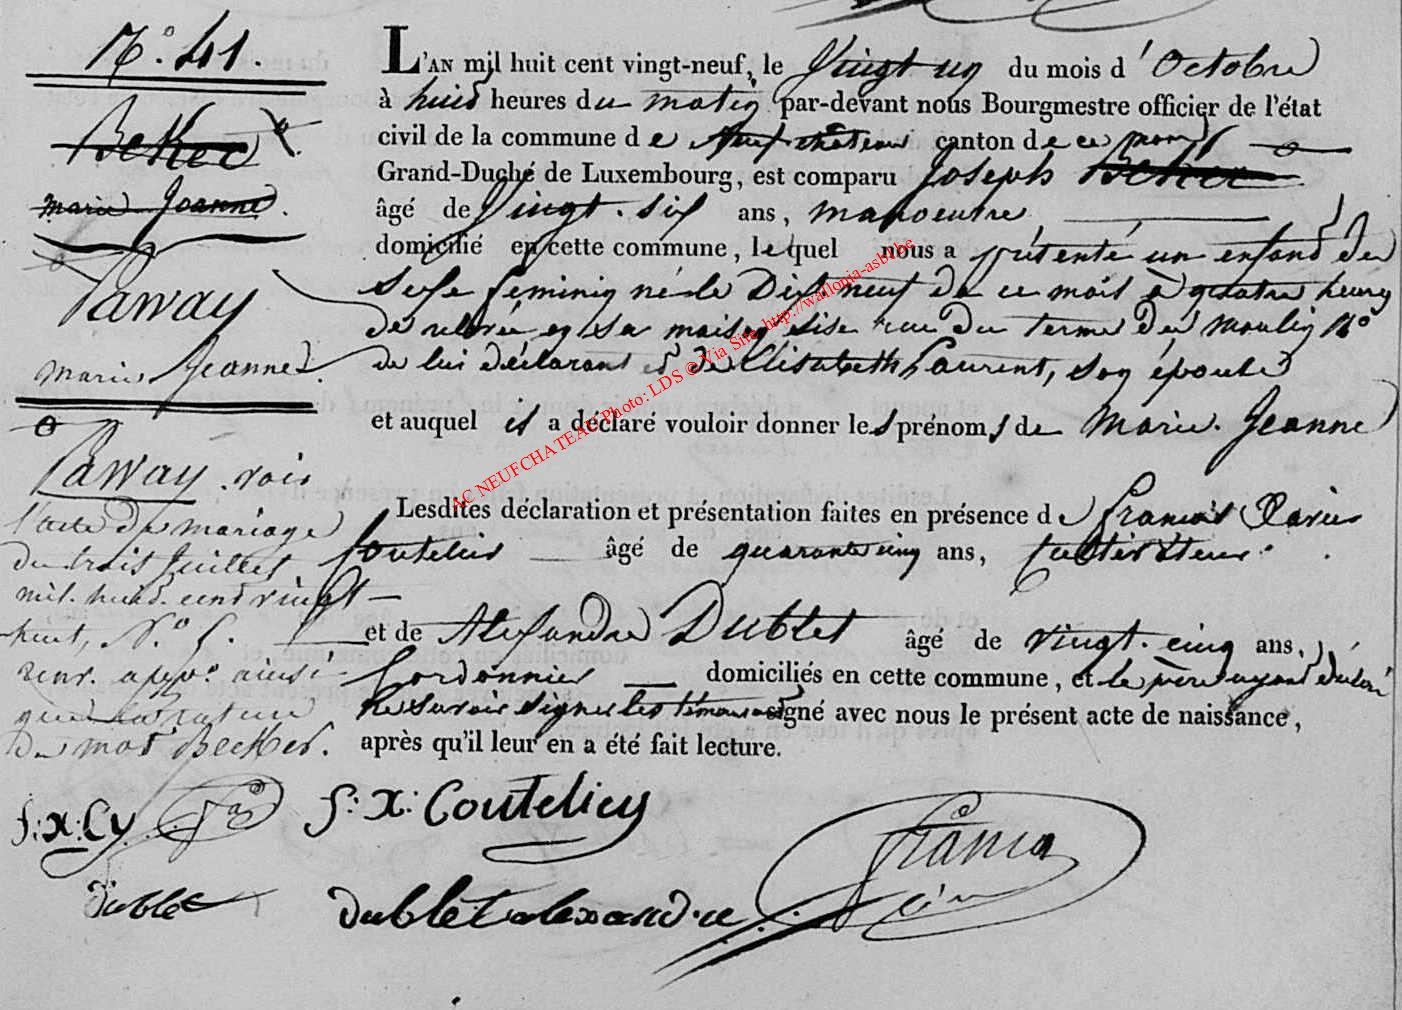 N.º 41.
Beker
marie Jeanne.
Paway
marie Jeanne
Paway. vois
l'acte de mariage
du trois Juillet
mil. huit. cent vingt—
huit, N.º 5.
renv. appr. ainsi
que la rature
du mot Becker.
L'AN mil huit cent vingt-neuf, le Vingt un du mois d'Octobre
à huit heures du matin par-devant nous Bourgmestre officier de l'état
civil de la commune de Neufchâteau canton de ce nom
Grand-Duché de Luxembourg, est comparu Joseph Beker
âgé de Vingt. six ans, manoeuvre
domicilié en cette commune, lequel nous a présenté un enfant du
sexe feminin né le Dixneuf de ce mois à quatre heures
de relevée en sa maison sise rue du terme du moulin Nº
de lui déclarant et de Elisabeth Laurent, son épouse
et auquel il a déclaré vouloir donner les prénoms de Marie. Jeanne
Lesdites déclaration et présentation faites en présence de François Xavier
Coutelier âgé de quarante cinq ans, cultivateur
et de Alexandre Dublet âgé de vingt. cinq ans,
Cordonnier domiciliés en cette commune, et le père ayant déclaré
ne savoir signer les témoins ont signé avec nous le présent acte de naissance,
après qu'il leur en a été fait lecture.
f: x: Cy.
f: x: Coutelier
dublet
dublet alexandre
AC NEUFCHATEAU Photo: LDS © Via Site http://wallonia-asbl.be